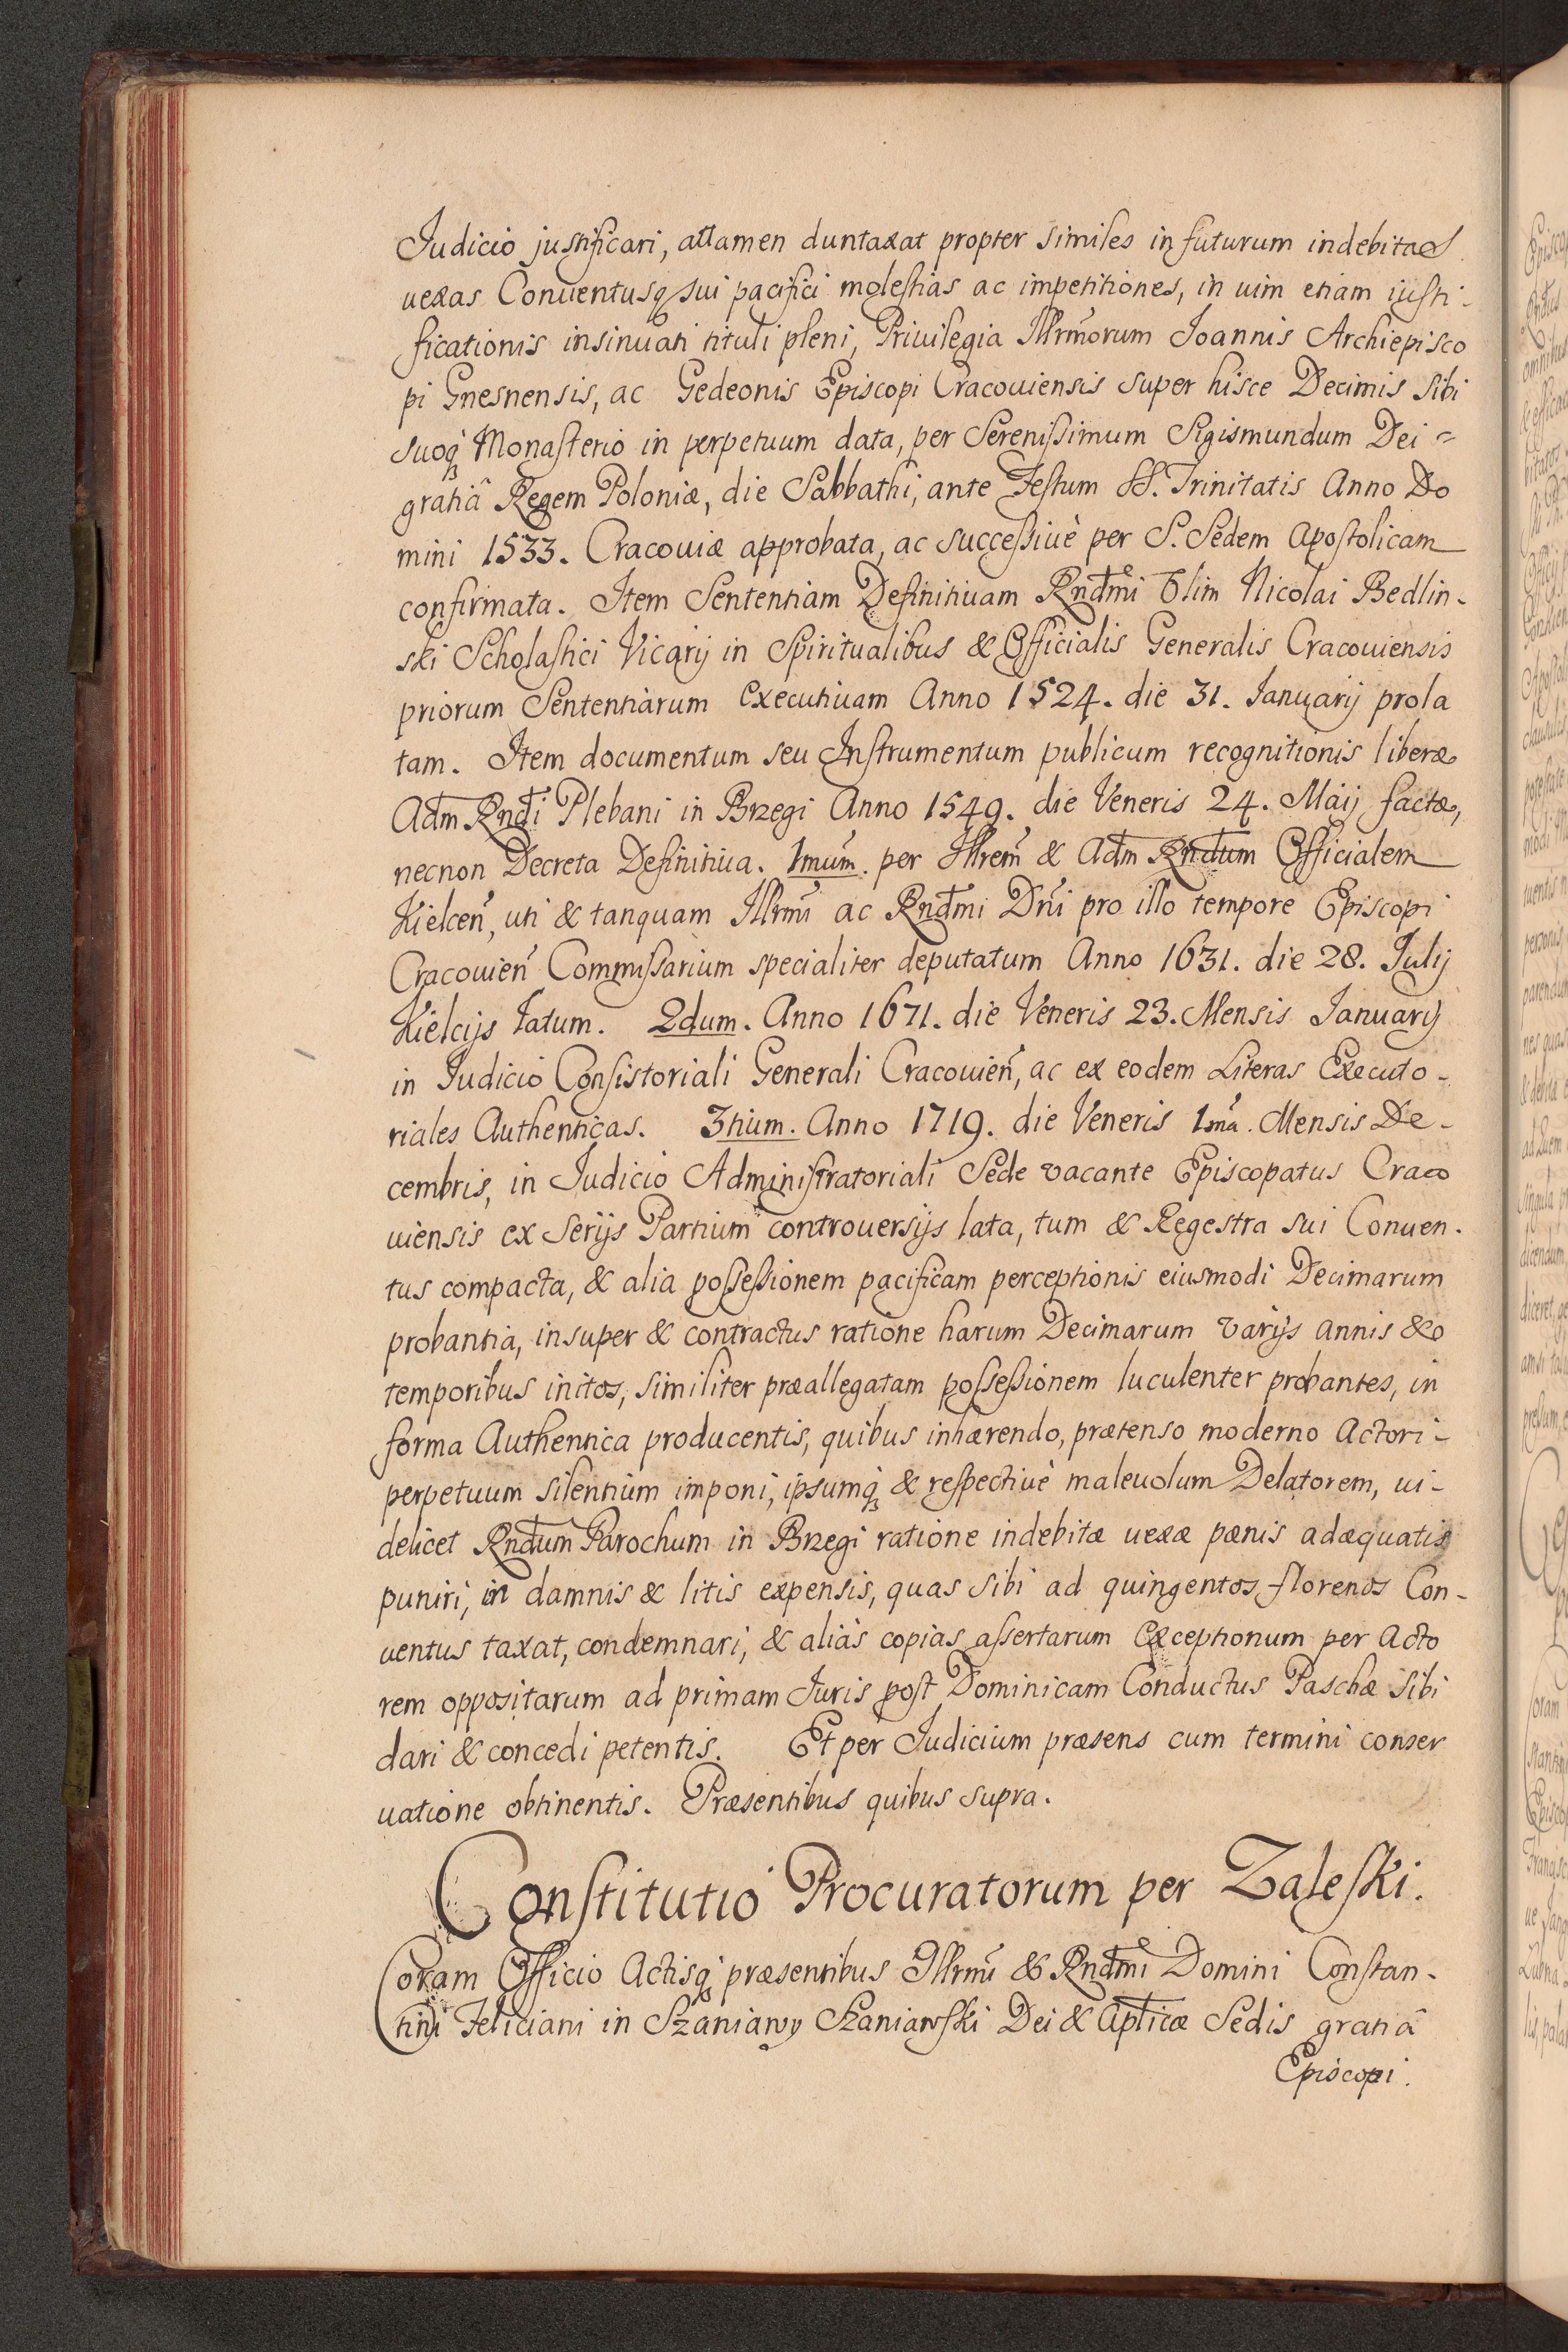 Judicio justificari, attamen duntaxat propter similes in futurum indebitas
uexas Conuentusq sui pacifici molestias ac impetitiones, in uim etiam iusti-
ficationis insinuati tituli pleni, Priuilegia Illrmorum Joannis Archiepisco
pi Gnesnensis, ac Gedeonis Episcopi Cracouiensis super hisce Decimis sibi
suoq Monasterio in perpetuum data, per Serenissimum Sigismundum Dei =
gratiâ Regem Poloniæ, die Sabbathi, ante Festum SS. Trinitatis Anno Do
mini 1533. Cracouiæ approbata, ac successiuè per S. Sedem Apostolicam
confirmata. Item Sententiam Definitiuam Rndmi olim Nicolai Bedlin-
ski Scholastici Vicarij in Spiritualibus & Officialis Generalis Cracouiensis
priorum Sententiarum executiuam Anno 1524. die 31. Januarij prola
tam. Item documentum seu Instrumentum publicum recognitionis liberæ
Adm Rndi Plebani in Brzegi Anno 1549. die Veneris 24. Maij factæ,
necnon Decreta Definitiua. 1mum. per Illrem & Adm Rndum Officialem
Kielceñ, uti & tanquam Illrmi ac Rndmi Dni pro illo tempore Episcopi
Cracouieñ Commissarium specialiter deputatum Anno 1631. die 28. Julij
Kielcijs latum. 2dum. Anno 1671. die Veneris 23. Mensis Januarij
in Judicio Consistoriali Generali Cracouieñ, ac ex eodem Literas Executo-
riales Authenticas. 3tium. Anno 1719. die Veneris 1ma. Mensis De-
cembris, in Judicio Administratoriali Sede vacante Episcopatus Craco
uiensis ex serijs Partium controuersijs lata, tum & Regestra sui Conuen-
tus compacta, & alia possessionem pacificam perceptionis eiusmodi Decimarum
probantia, insuper & contractus ratione harum Decimarum varijs annis &
temporibus initos, similiter præallegatam possessionem luculenter probantes, in
forma Authentica producentis, quibus inhærendo, prætenso moderno Actori-
perpetuum silentium imponi, ipsumq & respectiuè maleuolum Delatorem, ui-
delicet Rndum Parochum in Brzegi ratione indebitæ uexæ pænis adæquatis
puniri, in damnis & litis expensis, quas sibi ad quingentos florenos Con-
uentus taxat, condemnari, & aliàs copias assertarum exceptionum per Acto
rem oppositarum ad primam Juris post Dominicam Conductus Paschæ sibi
dari & concedi petentis. Et per Judicium præsens cum termini conser
uatione obtinentis. Præsentibus quibus supra.
Constitutio Procuratorum per Zaleski.
Coram Officio Actisq præsentibus Illrmi & Rndmi Domini Constan-
tini Feliciani in Szaniawy Szaniawski Dei & Aplicæ Sedis gratiâ
Episcopi.